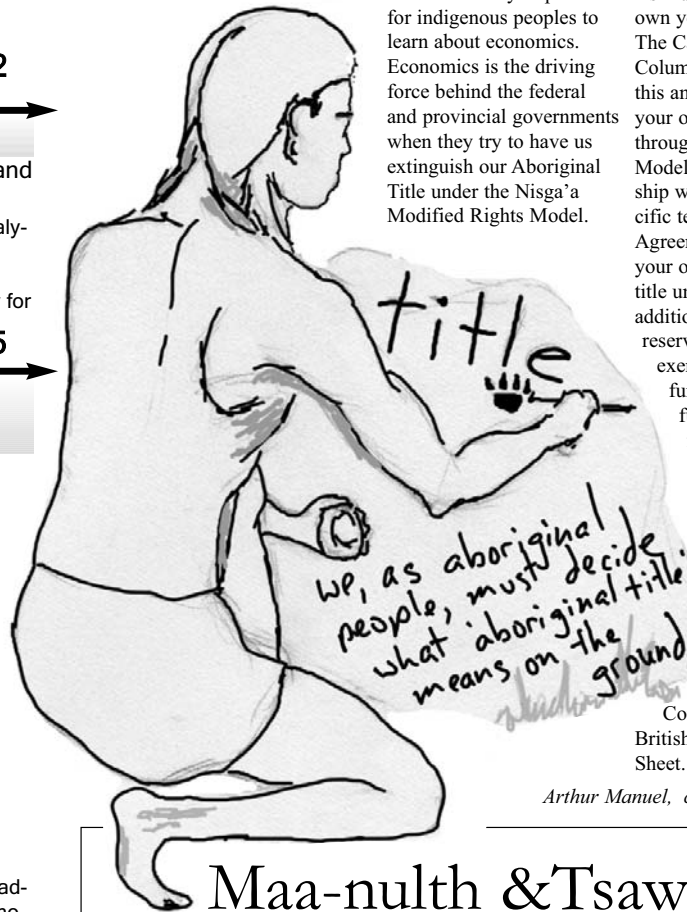 2
and
aly-
for
5
for indigenous peoples to
learn about economics.
Economics is the driving
force behind the federal
and provincial governments
when they try to have us
extinguish our Aboriginal
Title under the Nisga'a
Modified Rights Model.
own y
The C
Colum
this an
your o
throug
Model
ship w
cific te
Agreem
your o
title un
additio
reserv
exer
fu
f
title
we, as aboriginal
people, must decide
what 'aboriginal title'
means on the
ground
Co
British
Sheet.
Arthur Manuel,
ad-
Maa-nulth &Tsaw